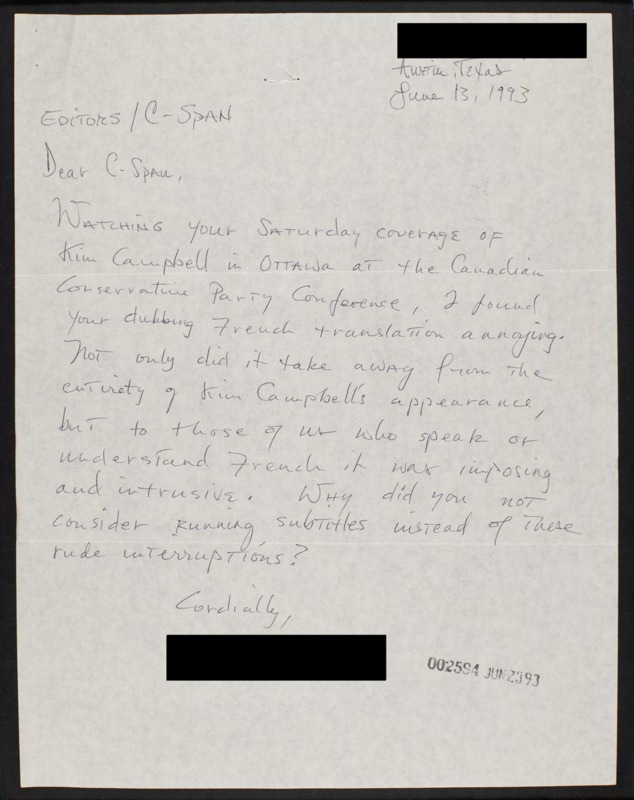 Austin, Texas
June 13, 1993
EDITORS / C-SPAN
Dear C-Span,
WATCHING your SATurday COVERAGE OF
Kim Campbell in OTTAWA AT the Canadian
Conservative Party Conference, I found
your dubbing French translation annoying.
Not only did it take away from the
entirety of Kim Campbell's appearance,
but to those of us who speak or
understand French it was imposing
and intrusive. Why did you not
consider running subtitles instead of these
rude interruptions?
Cordially,
002594 JUN2393